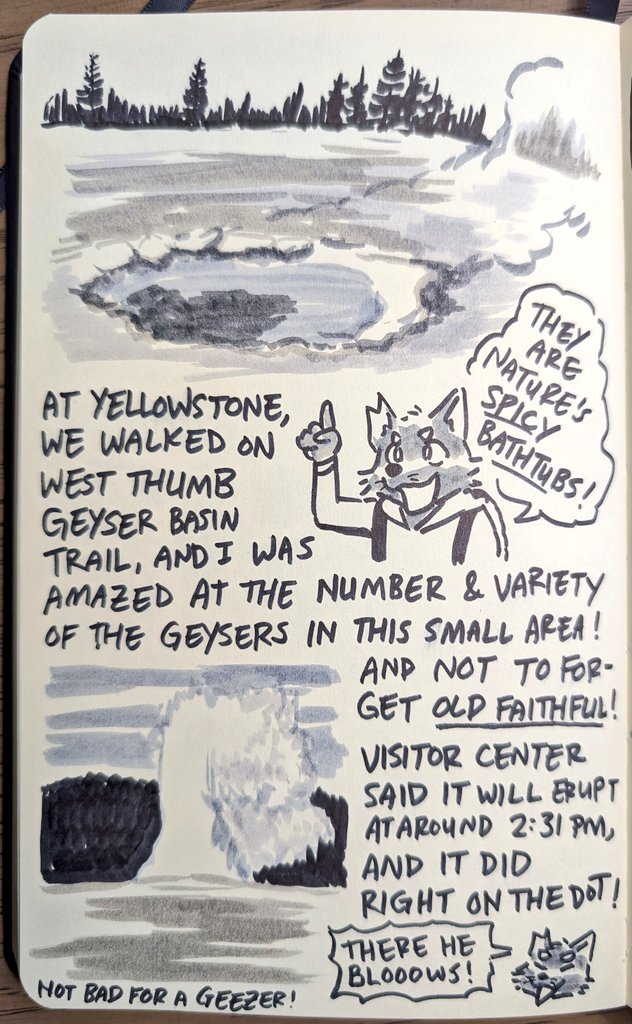 THEY
ARE
NATURE'S
SPICY
BATHTUBS!
AT YELLOWSTONE,
WE WALKED ON
WEST THUMB
GEYSER BASIN
TRAIL, AND I WAS
AMAZED AT THE NUMBER & VARIETY
OF THE GEYSERS IN THIS SMALL AREA!
AND NOT TO FOR-
GET OLD FAITHFUL!
VISITOR CENTER
SAID IT WILL ERUPT
AT AROUND 2:31 PM,
AND IT DID
RIGHT ON THE DOT!
THERE HE
BLOOOWS!
NOT BAD FOR A GEEZER!